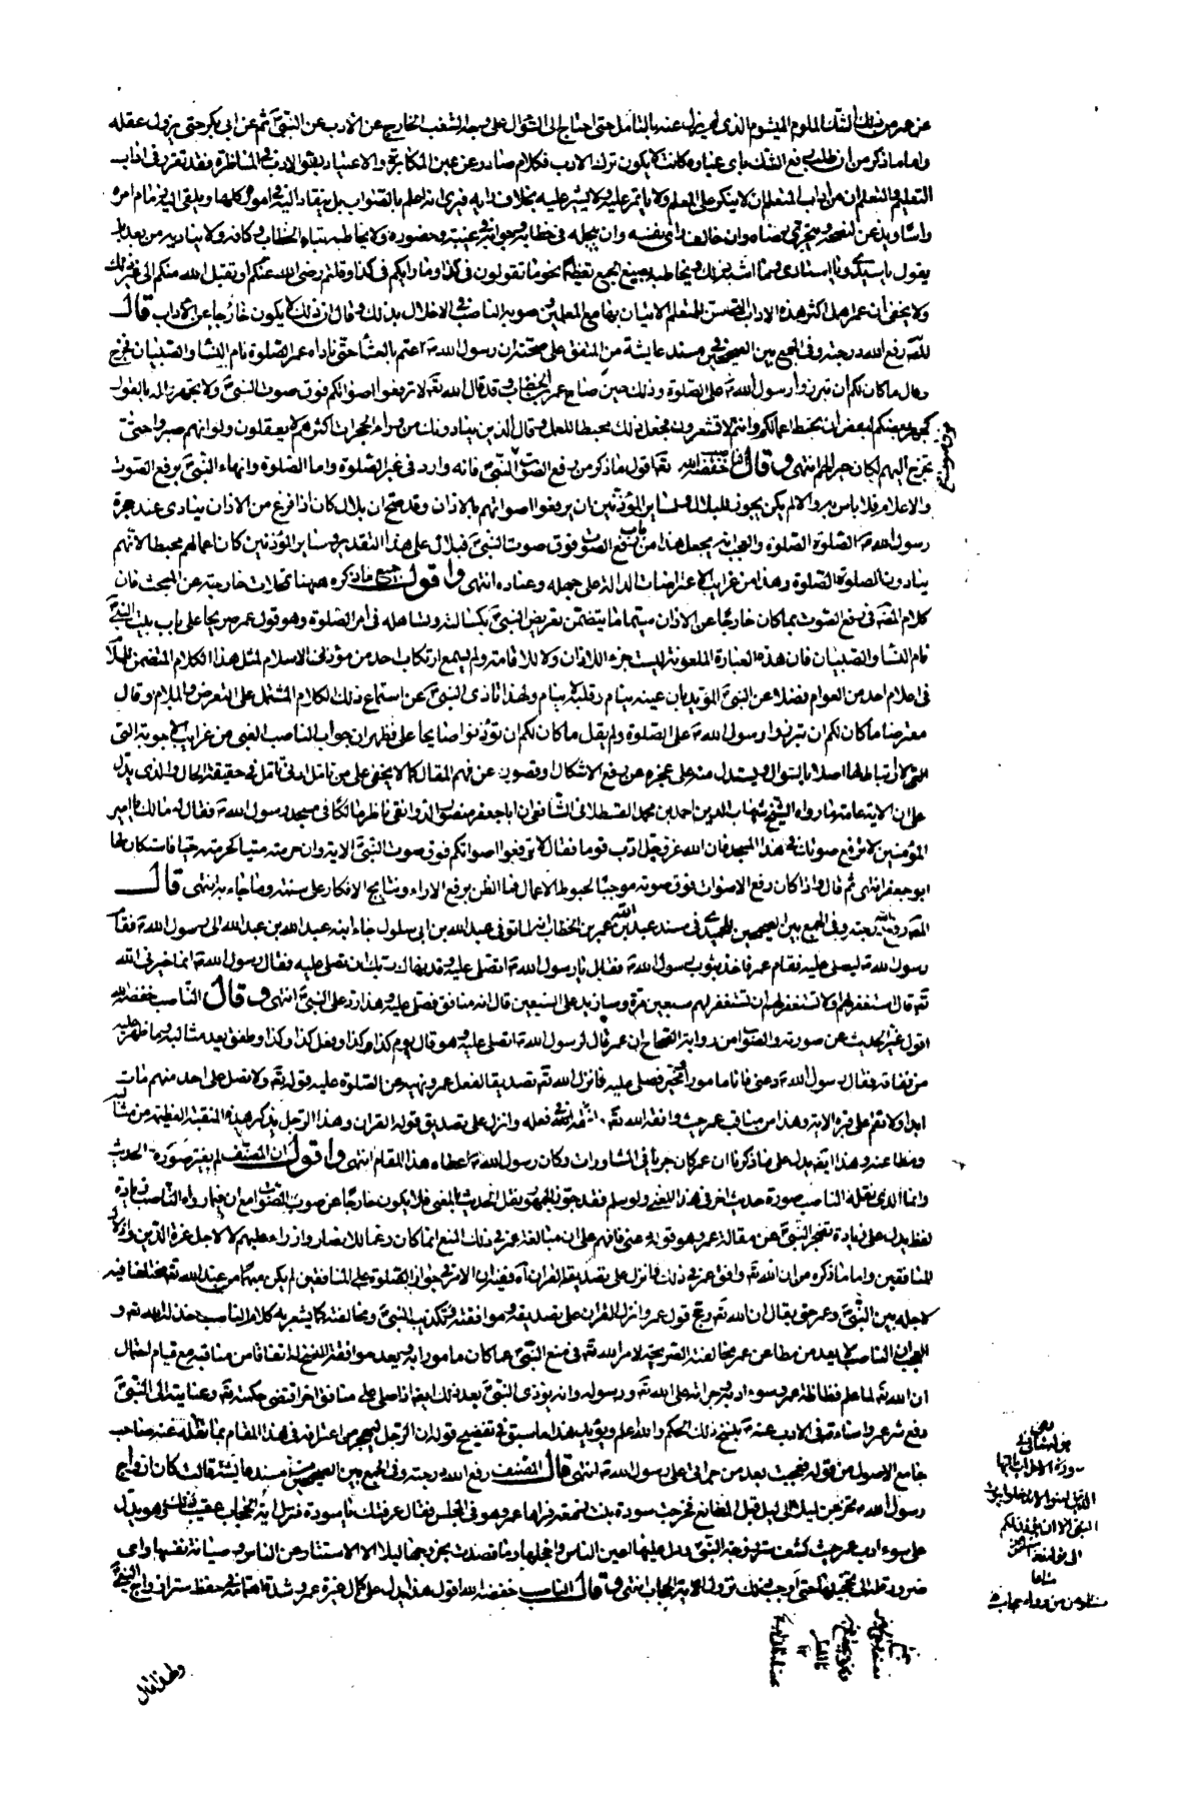 عن عمر من ذلك الشك الملوم الميشوم الذى لم يزل عنه بالتأمل حتى احتاج الى السؤال على وجه الشغب الخارج عن الادب عن النبى ثم عن ابى بكر حتى يزول عقله
واما ما ذكر من ان طلب رفع الشك باى عبارة كانت لا يكون ترك الادب فكلام صادر عن عين المكابرة والاعتياد بقلة الادب فى المناظرة وقد تقرر فى اداب
التعليم والتعلم ان من اداب المتعلم ان لا ينكر على المعلم ولا يأتمر عليه ولا يشير عليه بخلاف رايه فيرى انه اعلم بالصواب بل ينقاد اليه فى اموره كلها ويلقى اليه زمام امره
نفسه وان يبجله فى خطابه وجوابه فى غيبته وحضوره ولا يخاطبه بتاء الخطاب وكافه ولا يناديه من بعد بل
يقول يا سيدى ويا استادى وما اشبه ذلك ويخاطبه بصيغ الجمع تعظيما نحو ما تقولون فى كذا وما رايكم فى كذا وقلتم رضى الله عنكم او تقبل الله منكم الى غير ذلك
ولا يخفى ان عمر اهمل اكثر هذه الاداب وقال ان ذلك لا يكون خارجا عن الاداب قال
المصنف رفع الله درجته وفى الجمع بين الصحيحين فى مسند عايشة من المتفق على صحته ان رسول الله اعتم بالعشا حتى ناداه عمر الصلوة نام النسا والصبيان فخرج
وقال ما كان لكم ان تبرزوا رسول الله على الصلوة وذلك حين صاح عمر بن الخطاب وقد قال الله تعالى لا ترفعوا اصواتكم فوق صوت النبى ولا تجهروا له بالقول
كجهر بعضكم لبعض ان تحبط اعمالكم وانتم لا تشعرون فجعل ذلك محبطا للعمل وقال الذين ينادونك من وراء الحجرات اكثرهم لا يعقلون ولو انهم صبروا حتى
تخرج اليهم لكان خيرا لهم انتهى وقال الناصب خفضه الله اقول ما ذكر من رفع الصوت النبى فانه وارد فى غير الصلوة واما الصلوة وانهاء النبى برفع الصوت
والاعلام فلا باس به والا لم يكن يجوز للبلال وساير المؤذنين ان يرفعوا اصواتهم بالاذان وقد صح ان بلال كان اذا فرغ من الاذان ينادى عند حجرة
رسول الله الصلوة الصلوة والعجب انه يجعل هذا من باب رفع الصوت فوق صوت النبى فبلال على هذا التقدير وساير المؤذنين كان اعمالهم محبطا لانهم
ينادون بالصلوة الصلوة وهذا من غرايب الاعتراضات الدالة على جهله وعناده انتهى واقول جميع ما ذكره ههنا خارجة عن المبحث فان
كلام المصنف فى رفع الصوت بما كان خارجا عن الاذان سيما ما يتضمن تعريض النبى بكسالته وتساهله فى امر الصلوة وهو قول عمر صريحا على باب بيت النبى
نام النسا والصبيان فان هذه العبارة الملعونة ليست جزء للاذان ولا للاقامة ولم يسمع ارتكاب احد من مؤذنى الاسلام لمثل هذا الكلام المتضمن للملام
فى اعلام احد من العوام فضلا عن النبى المؤيد بان عينه ينام وقلبه لا ينام ولهذا تاذى النبى عن استماع ذلك الكلام المشتمل على التعرض والملام وقال
معترضا ما كان لكم ان تبرزوا رسول الله على الصلوة ولم يقل ما كان لكم ان تؤذنوا صايحا على فظهر ان جواب الناصب الغبى من غرايب الاجوبة التى
التى لا ارتباط لها اصلا بالسؤال ويستدل منه على عجزه عن رفع الاشكال وقصوره عن فهم المقال كما لا يخفى على من تامل ادنى تامل فى حقيقة الحال والذى يدل
على ان الاية عامة ما رواه الشيخ شهاب الدين احمد بن محمد القسطلانى الشافعى ان ابا جعفر منصور الدوانقى ناظر مالكا فى مسجد رسول الله فقال له مالك يا امير
المؤمنين لا ترفع صوتك فى هذا المسجد فان الله عز وجل ادب قوما فقال لا ترفعوا اصواتكم فوق صوت النبى الاية وان حرمته ميتا كحرمته حيا فاستكان لها
ابو جعفر انتهى ثم قال واذا كان رفع الاصوات فوق صوته موجبا لحبوط الاعمال فما الظن برفع الاراء ونتايج الافكار على سنته وما جاء به انتهى قال
المصنف رفع الله درجته وفى الجمع بين الصحيحين للحميدى فى مسند عبد الله بن عمر بن الخطاب انه لما توفى عبد الله بن ابى سلول جاء ابنه عبد الله بن عبد الله الى رسول الله فقام
رسول الله ليصلى عليه فقام عمر فاخذ بثوب رسول الله فقال يا رسول الله اتصلى عليه وقد نهاك ربك ان تصلى عليه فقال رسول الله انما خيرنى الله
تعالى قال استغفر لهم او لا تستغفر لهم ان تستغفر لهم سبعين مرة وسازيد على السبعين قال انه منافق فصلى عليه وهذا رد على النبى انتهى وقال الناصب خفضه الله
اقول غير الحديث عن صورته والصواب من رواية الصحاح ان عمر قال لرسول الله اتصلى عليه وهو قال يوم كذا وكذا وفعل كذا وكذا وطفق يعد مثالبه وما ظهر عليه
من نفاقه فقال رسول الله دعنى فانا مامور او مخير فصلى عليه فانزل الله تعالى تصديقا لفعل عمر ونهيه عن الصلوة عليه قوله تعالى ولا تصل على احد منهم مات
ابدا ولا تقم على قبره الاية وهذا من مناقب عمر حيث وافقه الله تعالى فعله وانزل على تصديق قوله القران وهذا الرجل يذكر هذه المنقبة العظيمة من مثالبه
ومطاعنه وهذا ايضا يدل على ما ذكرنا ان عمر كان جريا فى المشاورات وكان رسول الله اعطاه هذا المقام انتهى واقول ان المصنف لم يغير صورة الحديث
وانما الذى نقله الناصب صورة حديث اخر فى هذا المعنى ولو سلم فقد جوز الجمهور نقل الحديث بالمعنى فلا يكون خارجا عن صوب الصواب مع ان فيما رواه الناصب زيادة
لفظ يدل على زيادة تضجر النبى عن مقالة عمر وهو قوله دعنى فافهم على ان مبالغة عمر فى ذلك المنع انما كان رغما للانصار وازراء عليهم لا لاجل عزة الدين واذلال
للمنافقين واما ما ذكره من ان الله تعالى وافق عمر فى ذلك وانزل على تصديقه القران ففيه ان الامر فى جواز الصلوة على المنافقين لم يكن مبهما من عند الله تعالى مختلفا فيه
لاجله بين النبى وعمر حتى يقال ان الله تعالى رجح قول عمر وانزل القران على تصديقه وموافقته وتكذيب النبى ومخالفته كما يشعر به كلام الناصب خذله الله تعالى و
العجب ان الناصب لا يعد من مطاعن عمر مخالفته الصريحة لامر الله تعالى فى منع النبى عما كان مامورا به ويعد موافقة النسخ له اتفاقا من مناقبه مع قيام احتمال
ان الله تعالى لما علم فظاظة عمر وسوء ادبه وجراته على الله تعالى ورسوله وانه يؤذى النبى بعد ذلك ايضا اذا صلى على منافق اخر اقتضى حكمته تعالى وعنايته الى النبى
دفع شر عمر واساءته فى الادب عنه بنسخ ذلك الحكم والله اعلم ويؤيد هذا ما سبق فى تفضيح قوله ان الرجل ليهجر من اعترافه فى هذا المقام بما نقله عنه صاحب
جامع الاصول من قوله فعجبت بعد من جراتى على رسول الله انتهى قال المصنف رفع الله درجته وفى الجمع بين الصحيحين من مسند عايشة قالت كان ازواج
رسول الله تخرجن ليلا الى ليل قبل المصانع فخرجت سودة بنت زمعة فراها عمر وهو فى المجلس فقال عرفتك يا سودة فنزل اية الحجاب عقيب ذلك وهو يدل
على سوء ادب عمر حيث كشف ستر زوجة النبى ودل عليها اعين الناس واخجلها وما قصدت بخروجها ليلا الا الاستتار عن الناس وصيانة نفسها واى
ضرورة له الى تخجيلها حتى اوجب ذلك نزول اية الحجاب انتهى وقال الناصب خفضه الله اقول هذا يدل على كمال غيرة عمر وشدة اهتمامه فى حفظ ستر ازواج النبى
سورة الاحزاب
النبى الا ان يؤذن لكم
متاعا
من وراء حجاب